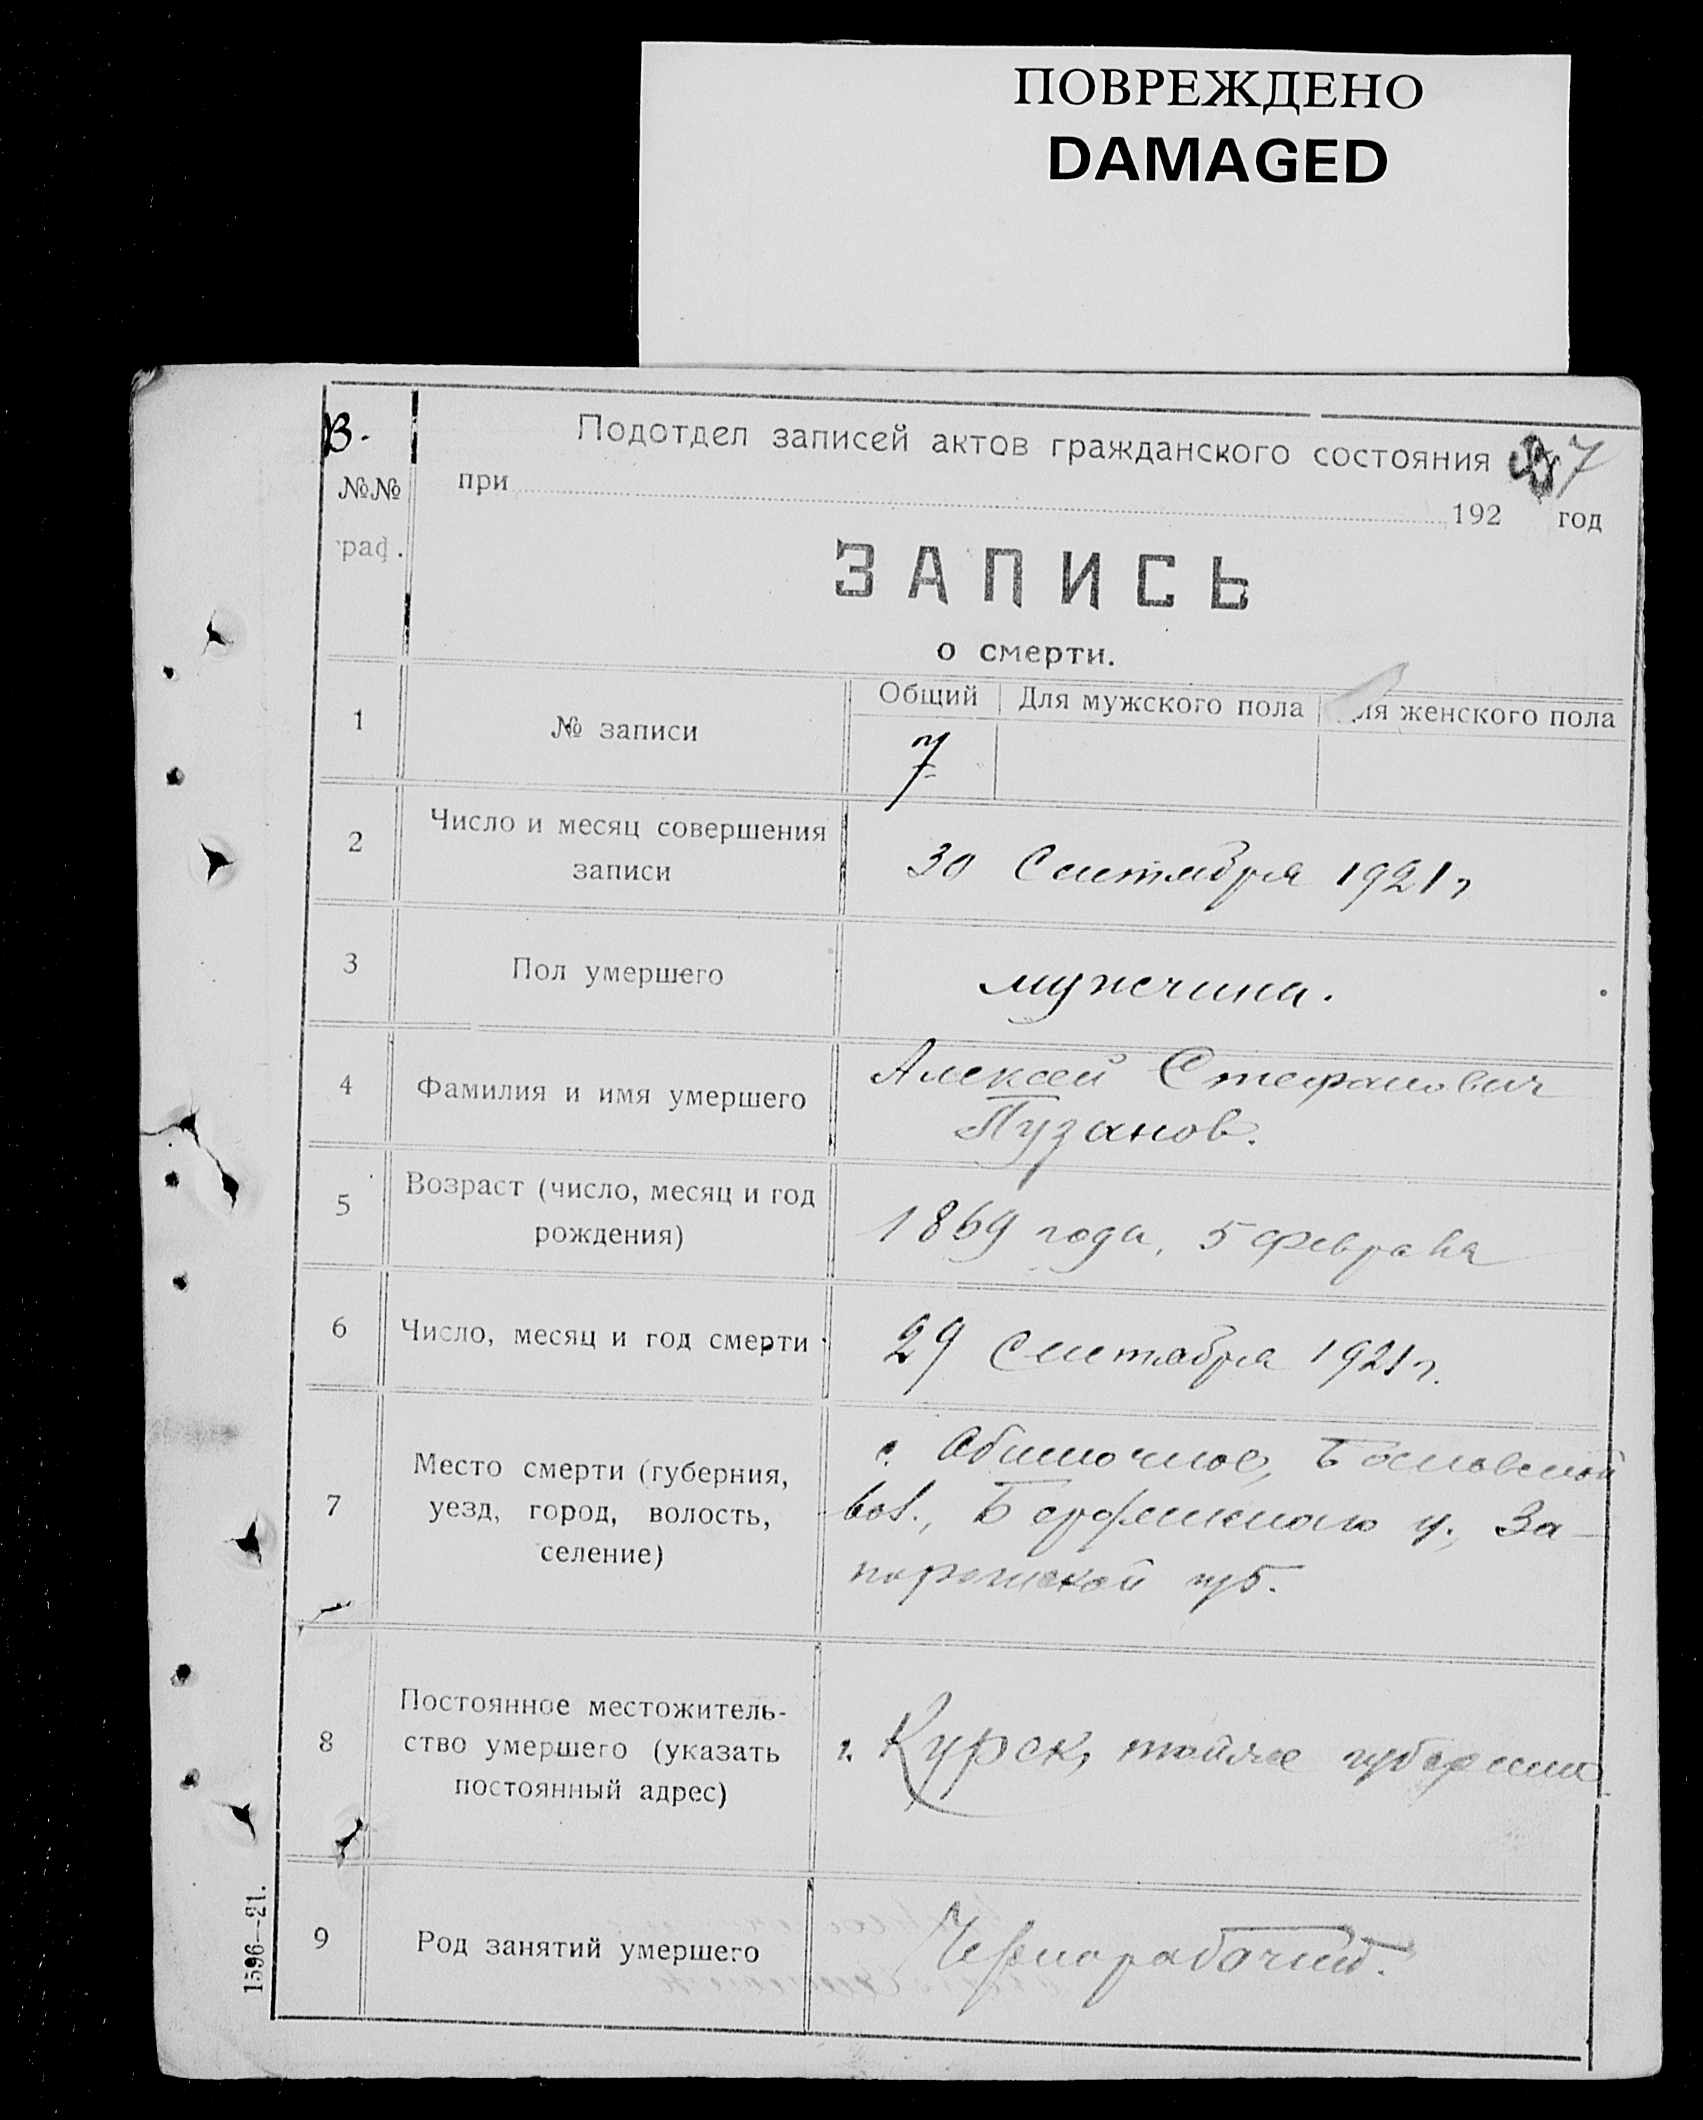 ПОВРЕЖДЕНО
DAMAGED
В.
Подотдел записей актов гражданского состояния
7
№№
при
192 год
граф.
ЗАПИСЬ
о смерти.
1
№ записи
Общий
Для мужского пола
Для женского пола
7
2
Число и месяц совершения
записи
30 Сентября 1921 г
3
Пол умершего
мужчина.
4
Фамилия и имя умершего
Алексей Стефанович
Пузанов.
5
Возраст (число, месяц и год
рождения)
1869 года, 5 февраля
6
Число, месяц и год смерти
29 Сентября 1921 г.
7
Место смерти (губерния,
уезд, город, волость,
селение)
с. Обиточное,
вол., у., За-
порожской губ.
8
Постоянное местожитель-
ство умершего (указать
постоянный адрес)
г. Курск, тойже губернии
9
Род занятий умершего
Чернорабочий.
1596—21.